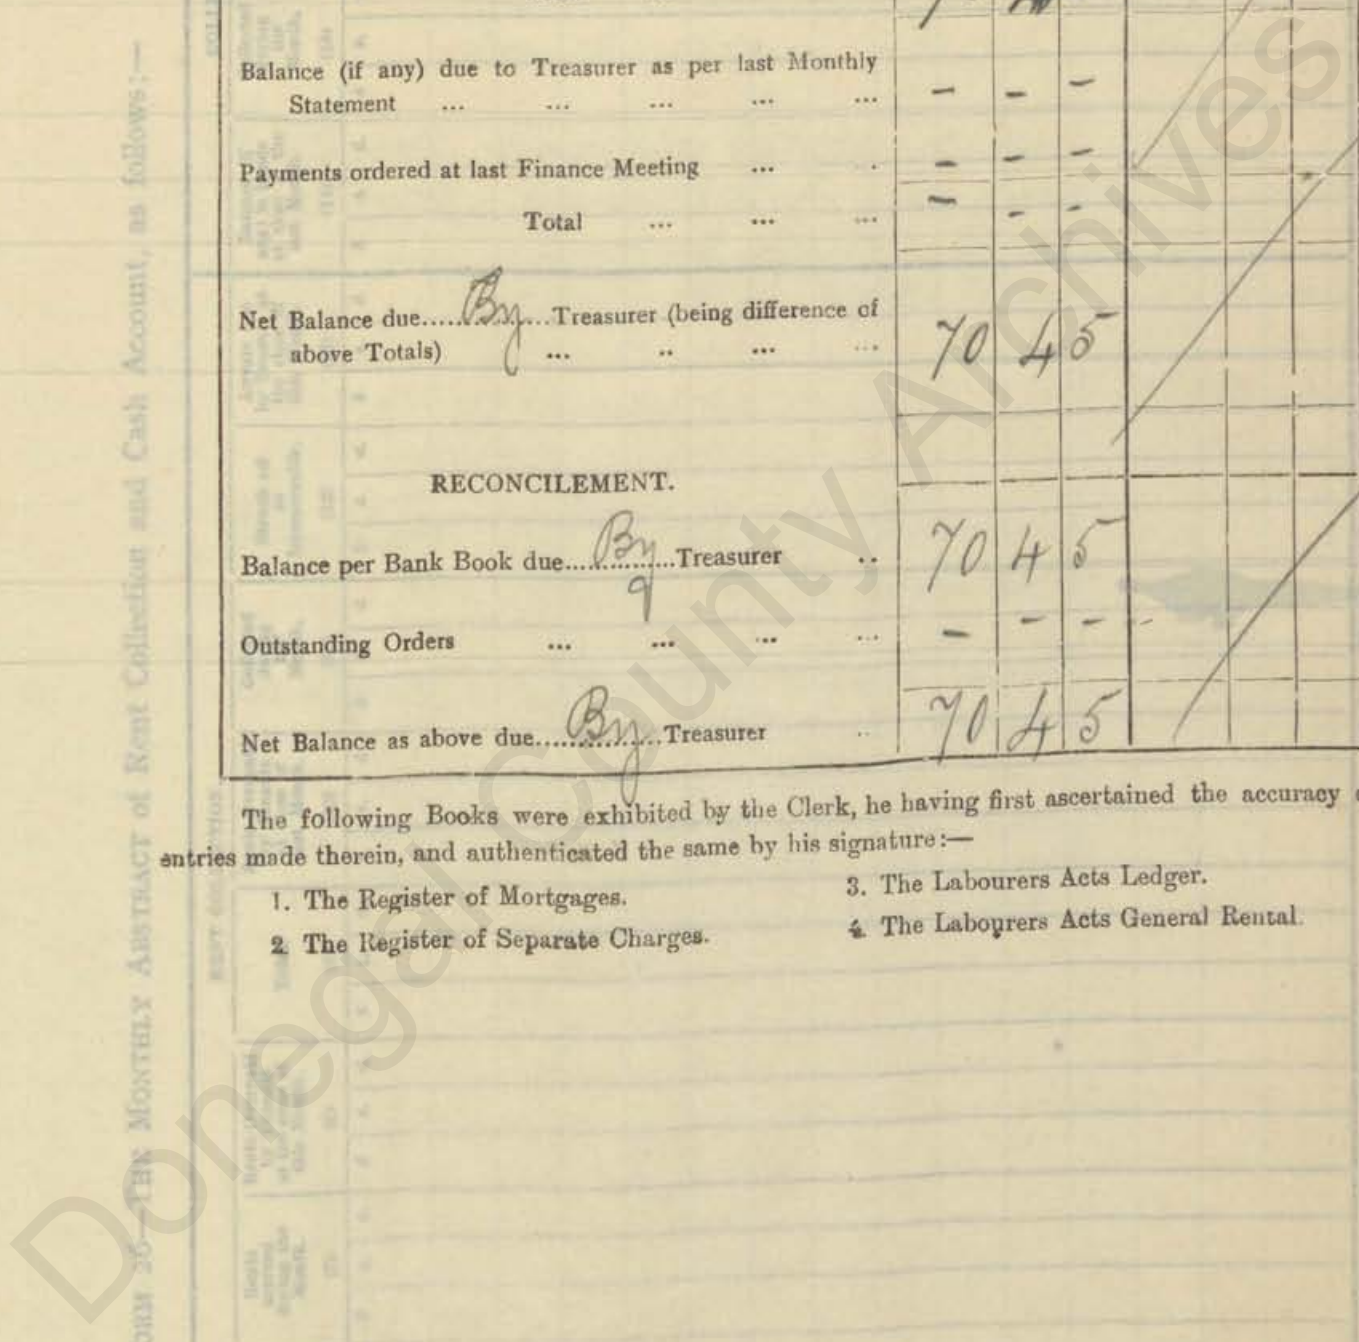 Balance (if any) due to Treasurer as per last Monthly
Statement ... ... ... ... ... - - -
Payments ordered at last Finance Meeting ... . - - -
Total ... ... ... - - -
Net Balance due......By......Treasurer (being difference of
above Totals) ... .. ... ... 70 4 5
RECONCILEMENT.
Balance per Bank Book due......By......Treasurer .. 70 4 5
Outstanding Orders ... ... ... ... - - -
Net Balance as above due......By......Treasurer .. 70 4 5
The following Books were exhibited by the Clerk, he having first ascertained the accuracy
entries made therein, and authenticated the same by his signature:—
1. The Register of Mortgages.
2. The Register of Separate Charges.
3. The Labourers Acts Ledger.
4. The Labourers Acts General Rental.
THE MONTHLY ABSTRACT of Rent Collection and Cash Account, as follows:—
Donegal County Archives